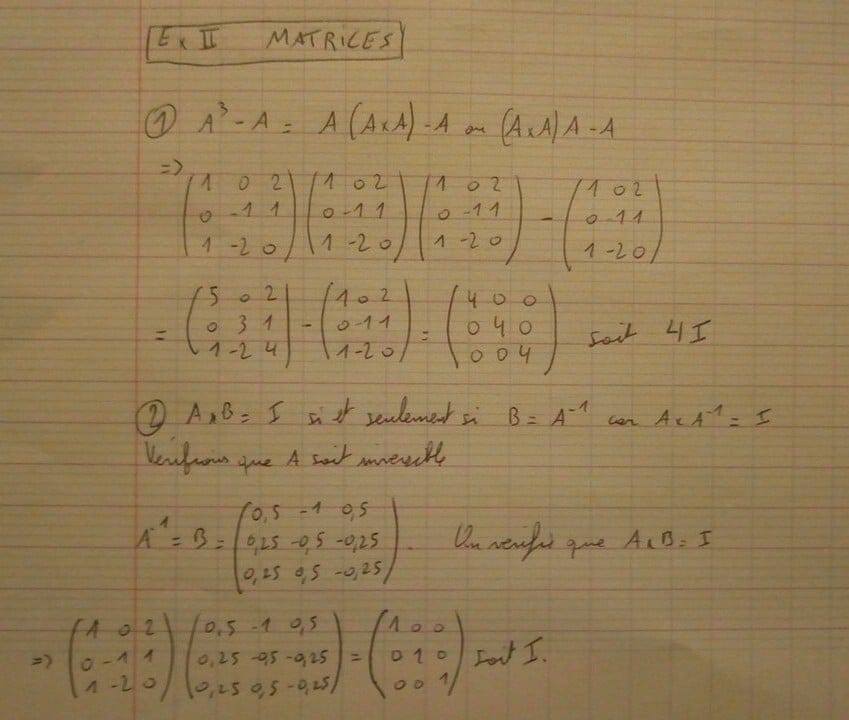 Ex II MATRICES
① A³ - A = A(A×A) - A ou (A×A)A - A
=> (1 0 2 / 0 -1 1 / 1 -2 0) (1 0 2 / 0 -1 1 / 1 -2 0) (1 0 2 / 0 -1 1 / 1 -2 0) - (1 0 2 / 0 -1 1 / 1 -2 0)
= (5 0 2 / 0 3 1 / 1 -2 4) - (1 0 2 / 0 -1 1 / 1 -2 0) = (4 0 0 / 0 4 0 / 0 0 4) soit 4I
② A×B = I si et seulement si B = A⁻¹ car A×A⁻¹ = I
Vérifions que A soit inversible
A⁻¹ = B = (0,5 -1 0,5 / 0,25 -0,5 -0,25 / 0,25 0,5 -0,25). On vérifie que A×B = I
=> (1 0 2 / 0 -1 1 / 1 -2 0) (0,5 -1 0,5 / 0,25 -0,5 -0,25 / 0,25 0,5 -0,25) = (1 0 0 / 0 1 0 / 0 0 1) soit I.